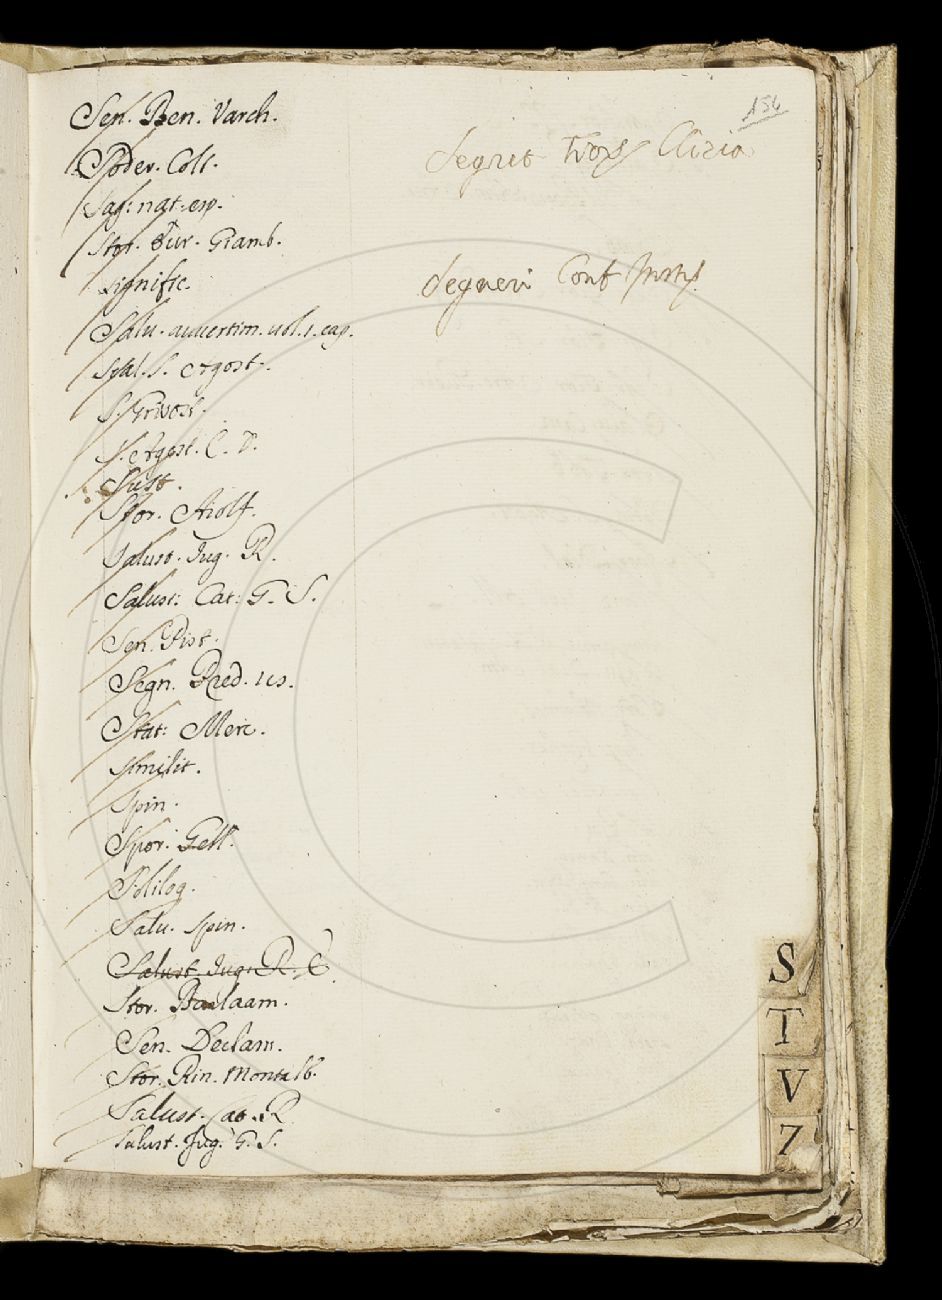 154
Sen. Ben. Varch.
Soder. Colt.
Sag: nat. esp.
Stor. Eur. Giamb.
Signific.
Salv. avvertim. vol. 1. cap.
Stal. S. Agost.
S. Grisost.
S. Agost. C. D.
Sust.
Stor. Aiolf.
Salust. Jug. R.
Salust: Cat: G. S.
Sen. Pist.
Segn. Pred. ies.
Stat: Merc.
Similit.
Spin.
Spor. Gell.
Solilog.
Salv. spin.
Salust. Jug: R. C
Stor. Barlaam.
Sen. Declam.
Stor. Rin. Montalb.
Salust. Cat. R.
Salust. Jug. G. S.
Segret Clizia
Segneri Conf
S
T
V
Z